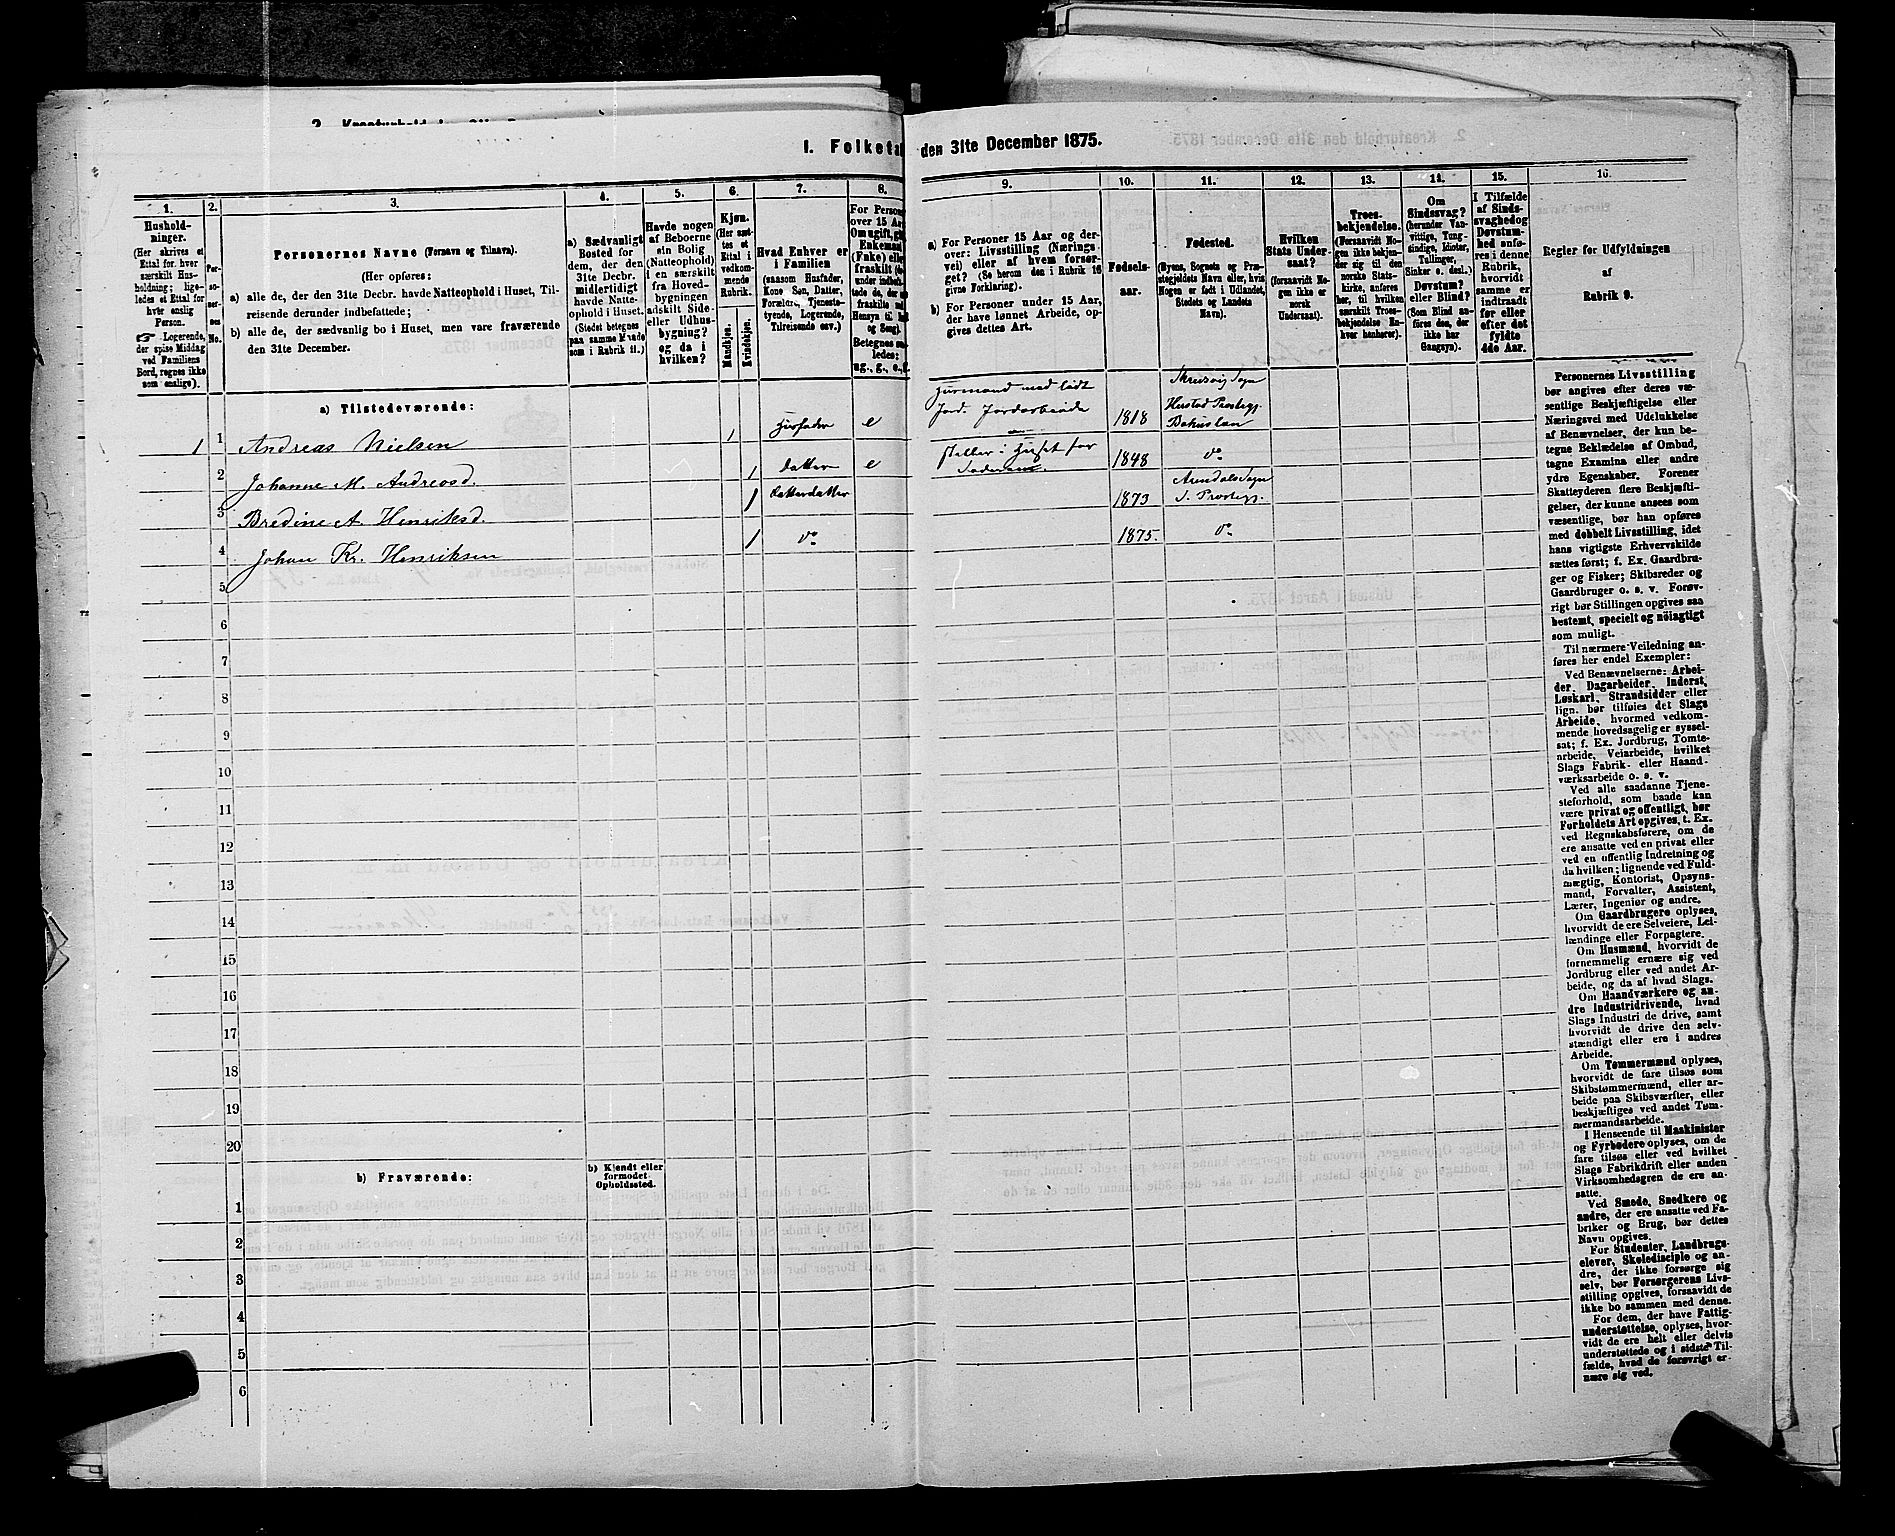 1. Folketal den 31te December 1875.
1.
2.
3.
4.
5.
6.
7.
8.
9.
10.
11.
12.
13.
14.
15.
16.
Hushold-
ninger.
(Her skrives et
Ettal for hver
særskilt Hus-
holdning; lige-
ledes et Ettal for
hver enslig
Person.
☞ Logerende,
der spise Middag
ved Familiens
Bord, regnes ikke
som enslige).
Per-
so-
ner-
nes
No.
Personernes Navne (Fornavn og Tilnavn).
(Her opføres:
a) alle de, der den 31te Decbr. havde Natteophold i Huset, Til-
reisende derunder indbefattede;
b) alle de, der sædvanlig bo i Huset, men vare fraværende
den 31te December.
a) Sædvanligt
Bosted for
dem, der den
31te Decbr.
midlertidigt
havde Natte-
ophold i Huset.
(Stedet betegnes
paa samme Maade
som i Rubrik 11.)
Havde nogen
af Beboerne
sin Bolig
(Natteophold)
i en særskilt
fra Hoved-
bygningen
adskilt Side-
eller Udhus-
bygning?
og da i
hvilken?
Kjøn.
(Her sæt-
tes et
Ettal i
vedkom-
mende
Rubrik.
Mandkjøn.
Kvindekjøn.
Hvad Enhver er
i Familien
(saasom Husfader,
Kone Søn, Datter,
Forældre, Tjeneste-
tyende, Logerende,
Tilreisende osv.)
For Person
over 15 Aar
Om ugift, gift
Enkemand
(Enke) eller
fraskilt
Betegnes saa-
ledes:
ug., g., e., f.
a) For Personer 15 Aar og der-
over: Livsstilling (Nærings-
vei) eller af hvem forsør-
get? (Se herom den i Rubrik 16
givne Forklaring).
b) For Personer under 15 Aar,
der have lønnet Arbeide, op-
gives dettes Art.
Fødsels-
aar.
Fødested.
(Byens, Sognets og Præ-
stegjeldets Navn eller, hvis
Nogen er født i Udlandet,
Stedets og Landets
Navn).
Hvilken
Stats Under-
saat?
(forsaavidt No-
gen ikke er
norsk
Undersaat).
Troes-
bekjendelse.
(Forsaavidt No-
gen ikke bekjen-
der sig til den
norske Stats-
kirke, anføres
her, til hvilken
særskilt Troes-
bekjendelse En-
hver henhører).
Om
Sindssvag?
(herunder Van-
vittige, Tung-
sindige, Idioter,
Tullinger,
Sinker o. desl.)
Døvstum?
eller Blind?
(Som Blind an-
føres den, der
ikke har
Gangsyn).
I Tilfælde
af Sinds-
svaghed og
Døvstum-
hed anfø-
res i denne
Rubrik,
hvorvidt
samme er
indtraadt
før eller
efter det
fyldte
4de Aar.
Regler for Udfyldningen
af
Rubrik 9.
a) Tilstedeværende:
1 1 Andreas Nielsen 1 Husfader e Husmand med lidt Jord. Jordarbeide 1818 Sogn Præstegj.
2 Johanne M. Andreasd. 1 datter e steller i Huset for Faderen. 1848 do
3 Bredine A. Henriksd. 1 datterdatter 1873 Arendals Sogn Præstegj.
4 Johan Kr. Henriksen 1 do 1875. do
5
6
7
8
9
10
11
12
13
14
15
16
17
18
19
20
b) Fraværende:
b) Kjendt eller
formodet
Opholdssted.
1
2
3
4
5
6
Personernes Livsstilling
bør angives efter deres væ-
sentlige Beskjæftigelse eller
Næringsvei med Udelukkelse
af Benævnelser, der kun be-
tegne Beklædelse af Ombud,
tagne Examina eller andre
ydre Egenskaber. Forener
Skatteyderen flere Beskjæfti-
gelser, der kunne ansees som
væsentlige, bør han opføres
med dobbelt Livsstilling, idet
hans vigtigste Erhvervskilde
sættes først; f. Ex. Gaardbru-
ger og Fisker; Skibsreder og
Gaardbruger o. s. v. Forøv-
rigt bør Stillingen opgives saa
bestemt, specielt og nøiagtigt
som muligt.
Til nærmere Veiledning an-
føres her endel Exempler:
Ved Benævnelserne: Arbei-
der, Dagarbeider, Inderst,
Løskarl, Strandsidder eller
lign. bør tilføies det Slags
Arbeide, hvormed vedkom-
mende hovedsagelig er syssel-
sat; f. Ex. Jordbrug, Tomte-
arbeide, Veiarbeide, hvilket
Slags Fabrik- eller Haand-
værksarbeide o. s. v.
Ved alle saadanne Tjene-
steforhold, som baade kan
være privat og offentligt, bør
Forholdets Art opgives, t. Ex.
ved Regnskabsførere, om de
ere ansatte ved en privat eller
ved en offentlig Indretning og
da hvilken; lignende ved Fuld-
mægtig, Kontorist, Opsyns-
mand, Forvalter, Assistent,
Lærer, Ingeniør og andre.
Om Gaardbrugere oplyses,
hvorvidt de ere Selveiere, Lei-
lændinge eller Forpagtere.
Om Husmænd, hvorvidt de
fornemmelig ernære sig ved
Jordbrug eller ved andet Ar-
beide, og da af hvad Slags.
Om Haandværkere og an-
dre Industridrivende, hvad
Slags Industri de drive, samt
hvorvidt de drive den selv-
stændigt eller ere i andres
Arbeide.
Om Tømmermænd oplyses,
hvorvidt de fare tilsøs som
Skibstømmermænd, eller ar-
beide paa Skibsværfter, eller
beskjæftiges ved andet Tøm-
mermandsarbeide.
I Henseende til Maskinister
og Fyrbødere oplyses, om de
fare tilsøs eller ved hvilket
Slags Fabrikdrift eller anden
Virksomhedsgren de ere an-
satte.
Ved Smede, Snedkere og
andre, der ere ansatte ved Fa-
briker og Brug, bør dettes
Navn opgives.
For Studenter, Landbrugs-
elever, Skoledisciple og an-
dre, der ikke forsørge sig
selv, bør Forsørgerens Livs-
stilling opgives, forsaavidt de
ikke bo sammen med denne.
For dem, der have Fattig-
understøttelse, oplyses, hvor-
vidt de ere helt eller delvis
understøttede og i sidste Til-
fælde, hvad de forøvrigt er-
nære sig ved.